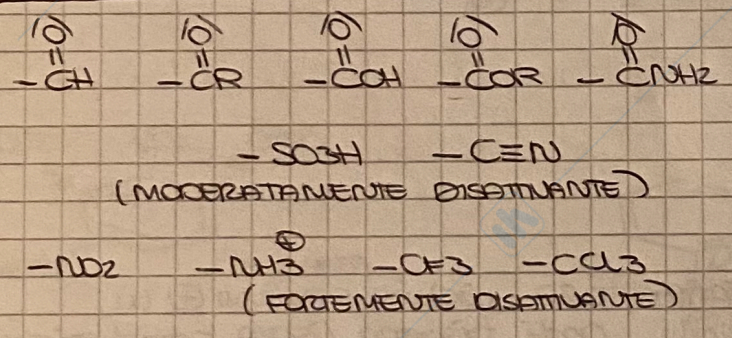 O O O O O
-CH -CR -COH -COR -CNH2
-SO3H -C≡N
(MODERATAMENTE DISATTIVANTE)
-NO2 -NH3⊕ -CF3 -CCl3
(FORTEMENTE DISATTIVANTE)